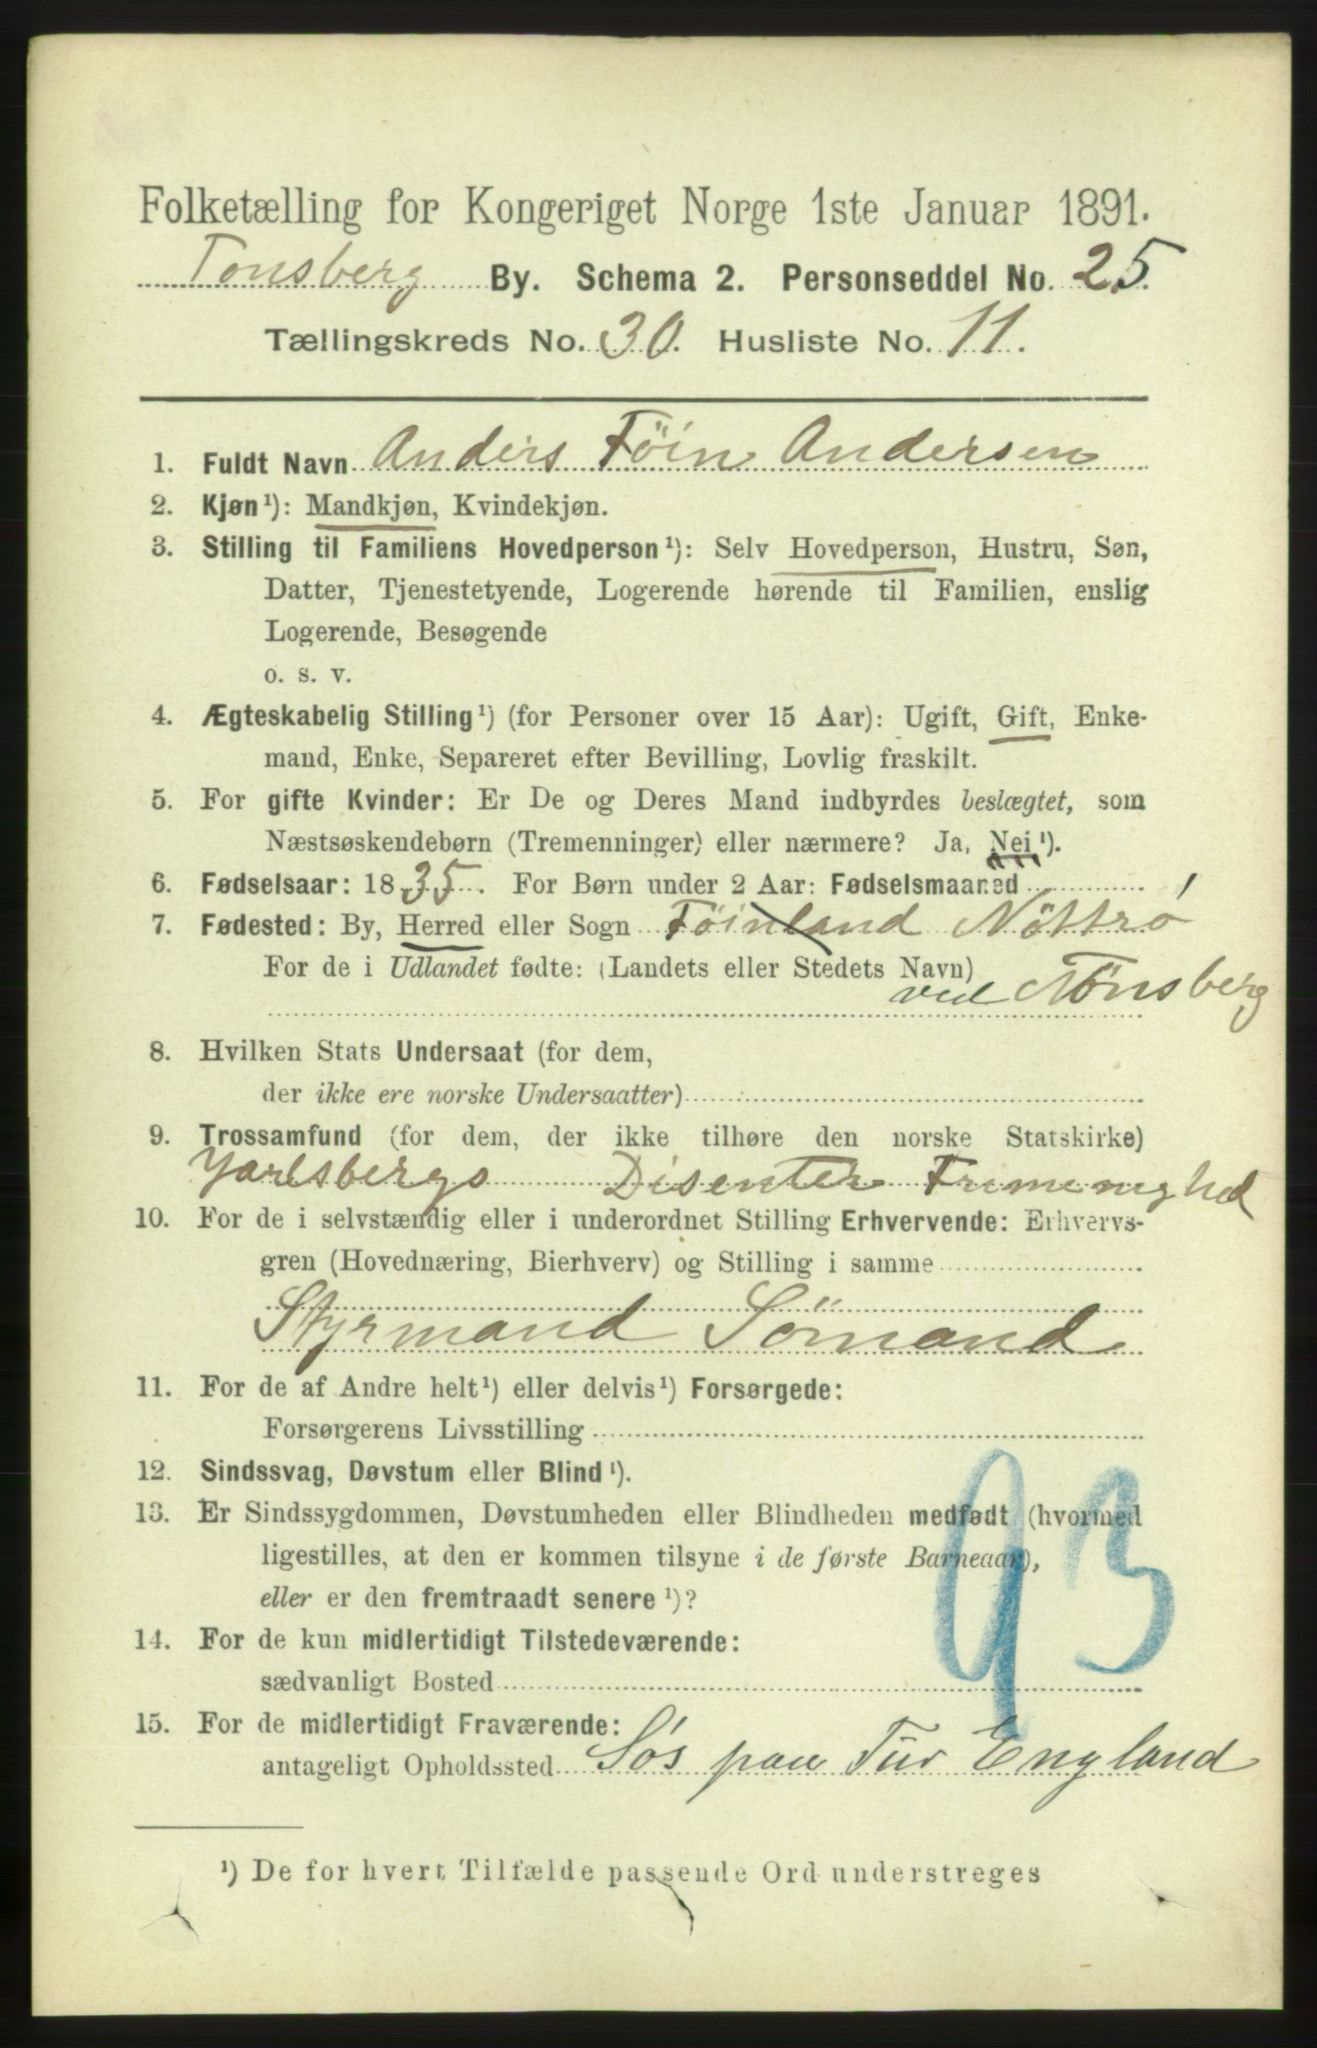 Folketælling for Kongeriget Norge 1ste Januar 1891.
Tonsberg By. Schema 2. Personseddel No. 25.
Tællingskreds No. 30. Husliste No. 11.
1. Fuldt Navn Anders Föin Andersen
2. Kjøn¹): Mandkjøn, Kvindekjøn.
3. Stilling til Familiens Hovedperson¹): Selv Hovedperson, Hustru, Søn,
Datter, Tjenestetyende, Logerende hørende til Familien, enslig
Logerende, Besøgende
o. s. v.
4. Ægteskabelig Stilling¹) (for Personer over 15 Aar): Ugift, Gift, Enke-
mand, Enke, Separeret efter Bevilling, Lovlig fraskilt.
5. For gifte Kvinder: Er De og Deres Mand indbyrdes beslægtet, som
Næstsøskendebørn (Tremenninger) eller nærmere? Ja, Nei¹).
6. Fødselsaar: 1835. For Børn under 2 Aar: Fødselsmaaned
7. Fødested: By, Herred eller Sogn Föinland Nöttrö
For de i Udlandet fødte: (Landets eller Stedets Navn)
ved Tönsberg
8. Hvilken Stats Undersaat (for dem,
der ikke ere norske Undersaatter)
9. Trossamfund (for dem, der ikke tilhøre den norske Statskirke)
Jarlsbergs Disenter Frimenighed
10. For de i selvstændig eller i underordnet Stilling Erhvervende: Erhvervs-
gren (Hovednæring, Bierhverv) og Stilling i samme
Styrmand Sömand
11. For de af Andre helt¹) eller delvis¹) Forsørgede:
Forsørgerens Livsstilling
12. Sindssvag, Døvstum eller Blind¹).
13. Er Sindssygdommen, Døvstumheden eller Blindheden medfødt (hvormed
ligestilles, at den er kommen tilsyne i de første Barneaar),
eller er den fremtraadt senere¹)?
93
14. For de kun midlertidigt Tilstedeværende:
sædvanligt Bosted
15. For de midlertidigt Fraværende:
antageligt Opholdssted Sös paa Tur England
¹) De for hvert Tilfælde passende Ord understreges